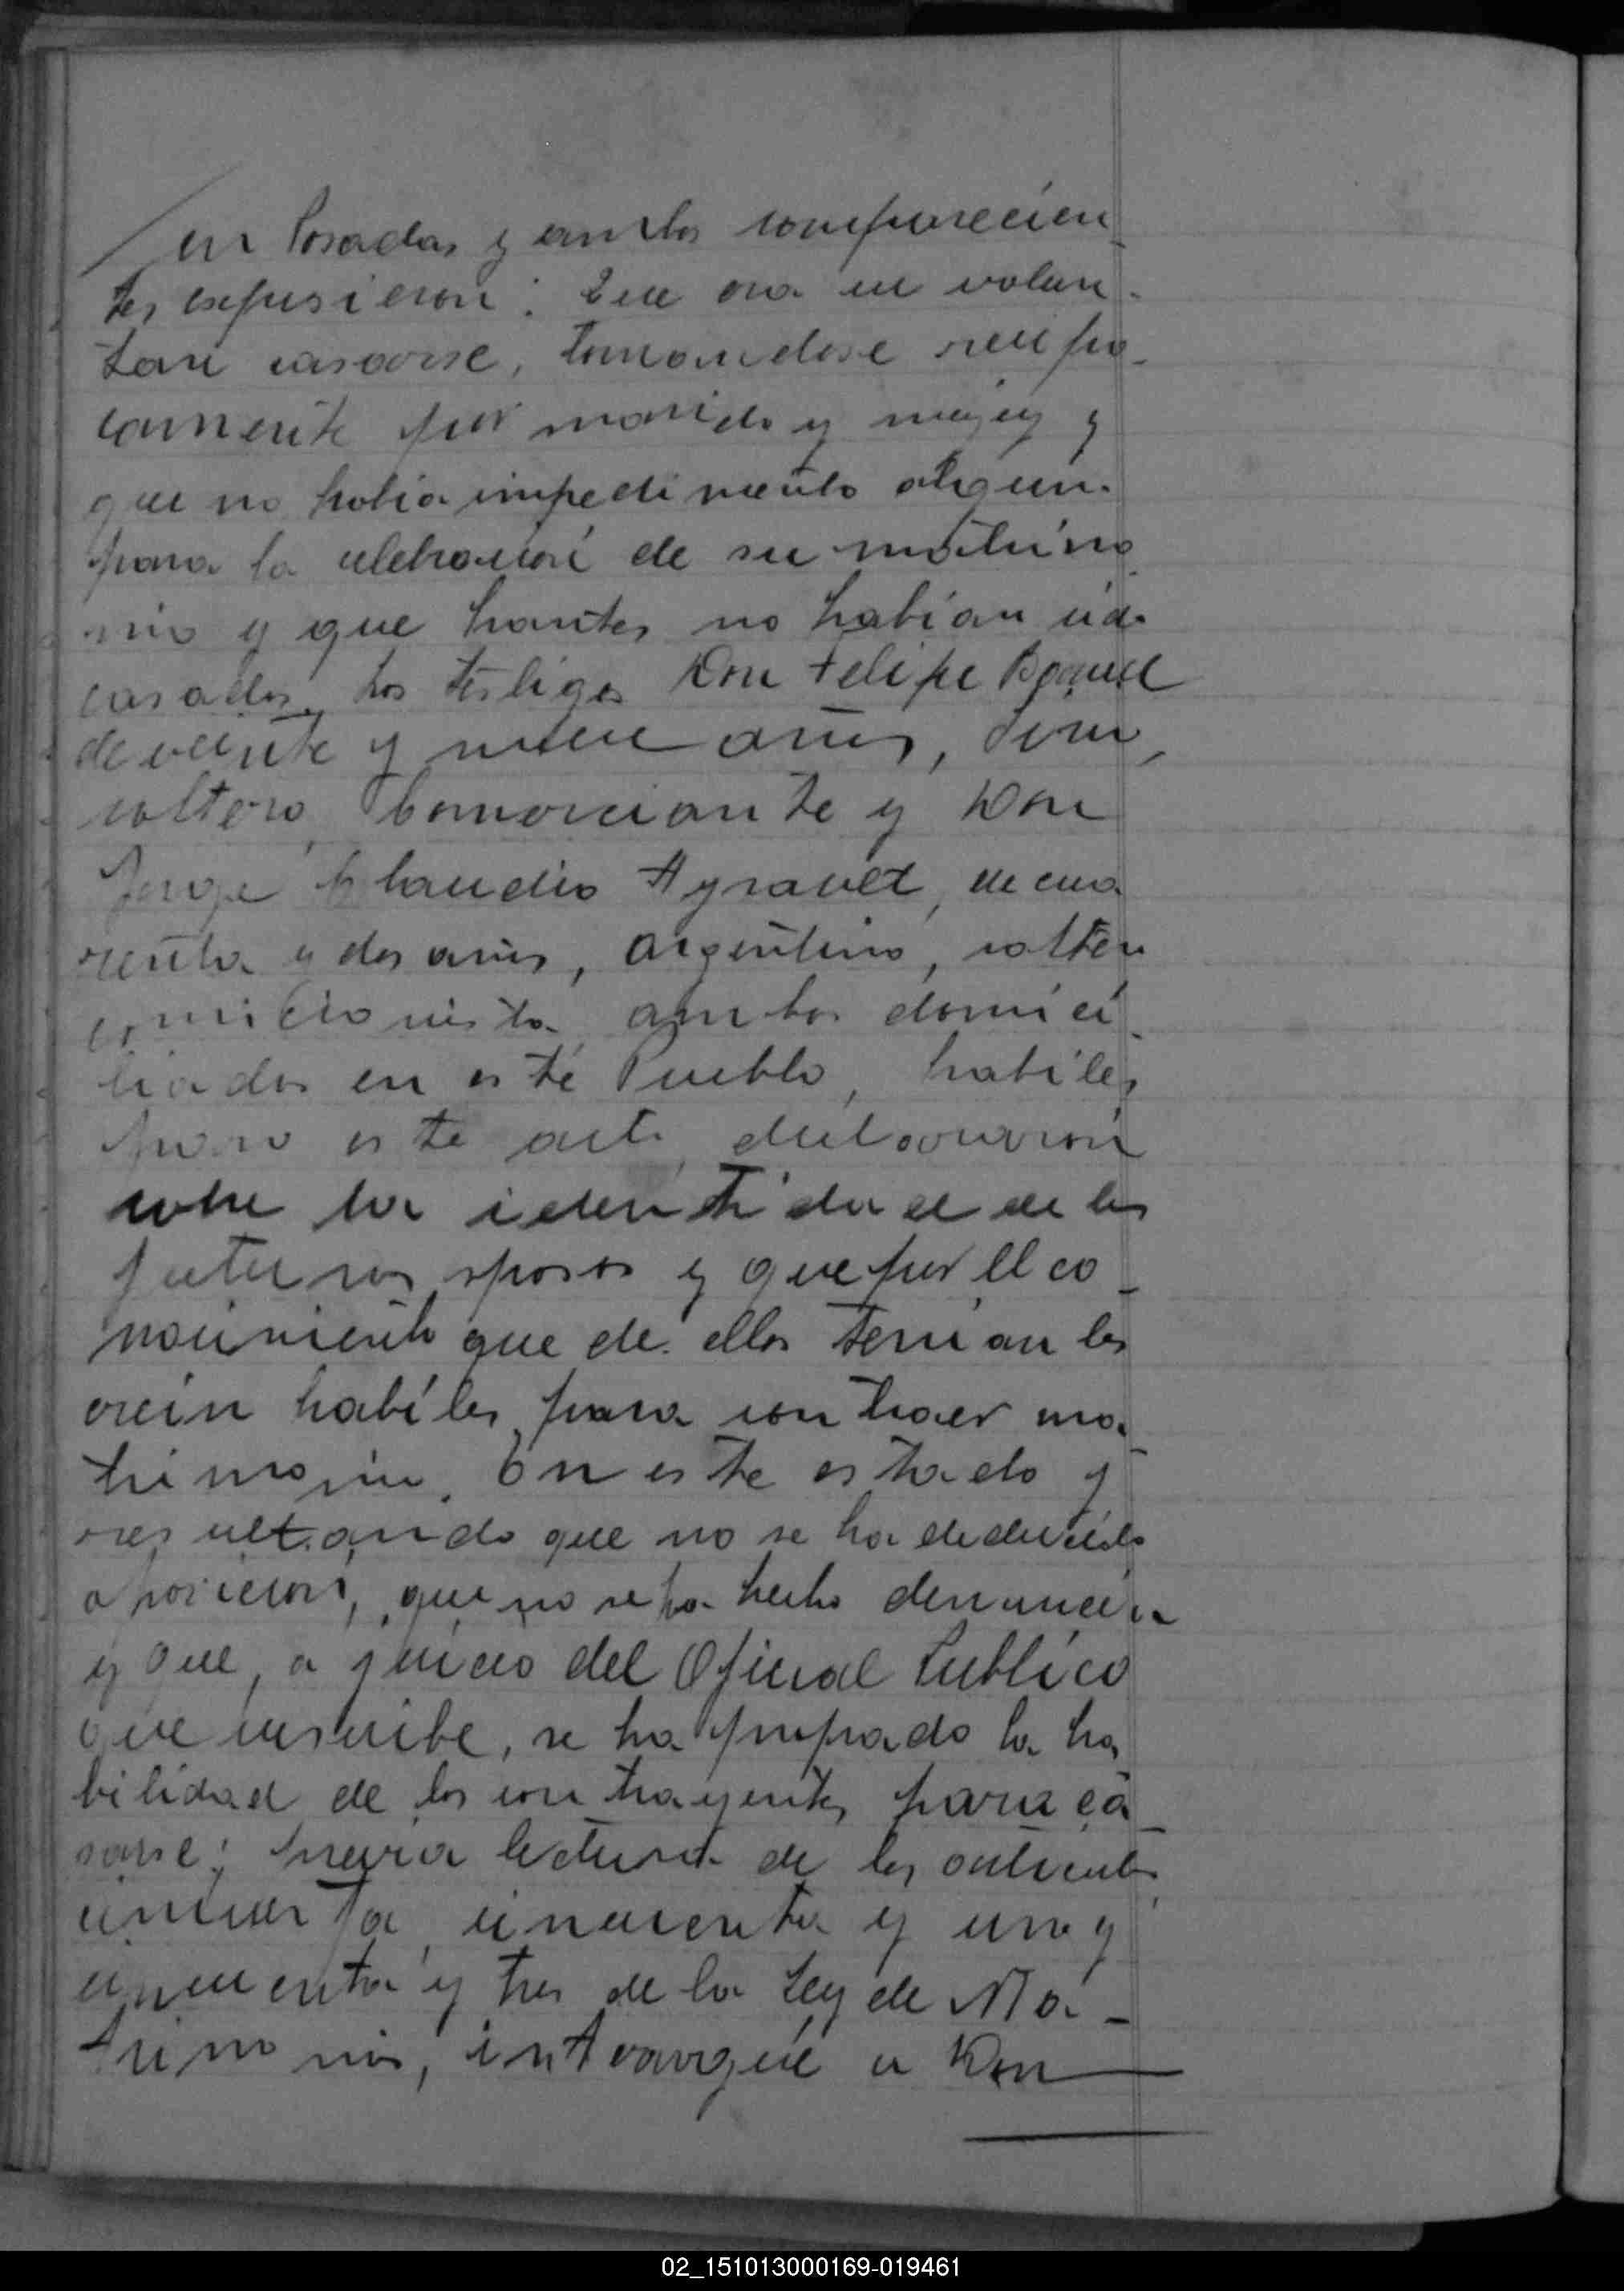 en Posadas y ambos comparecien
tes expusieron: Que era su volun-
tan casarse, tomandose recipro-
camente por marido y mujer y
que no habia impedimento algun
para la celebracion de su matrimo
nio y que hantes no habian sido
casados, Los testigos Don Felipe
de veinte y nueve años,
soltero, Comerciante y Don
Jorge Claudio de cua
renta y dos años, argentino, soltero
comicionista ambos domici
liados en este Pueblo, habiles
para este acto, declararon
sobre la identidad de los
futuros sposos y que por el co-
nocimiento que de ellos tenian los
crein habiles para contraer ma-
trimonio. En este estado y
resultando que no se ha deducido
oposicion, que no se ha hecho denuncia
y que, a juicio del Oficial Publico
que suscribe, se ha la ha
bilidad de los contrayentes para ca-
sarse; previa lectura de los articulos
cincuenta, cincuenta y uno y
cincuenta y tres de la Ley de Ma-
trimonios, a Don
02_151013000169-019461